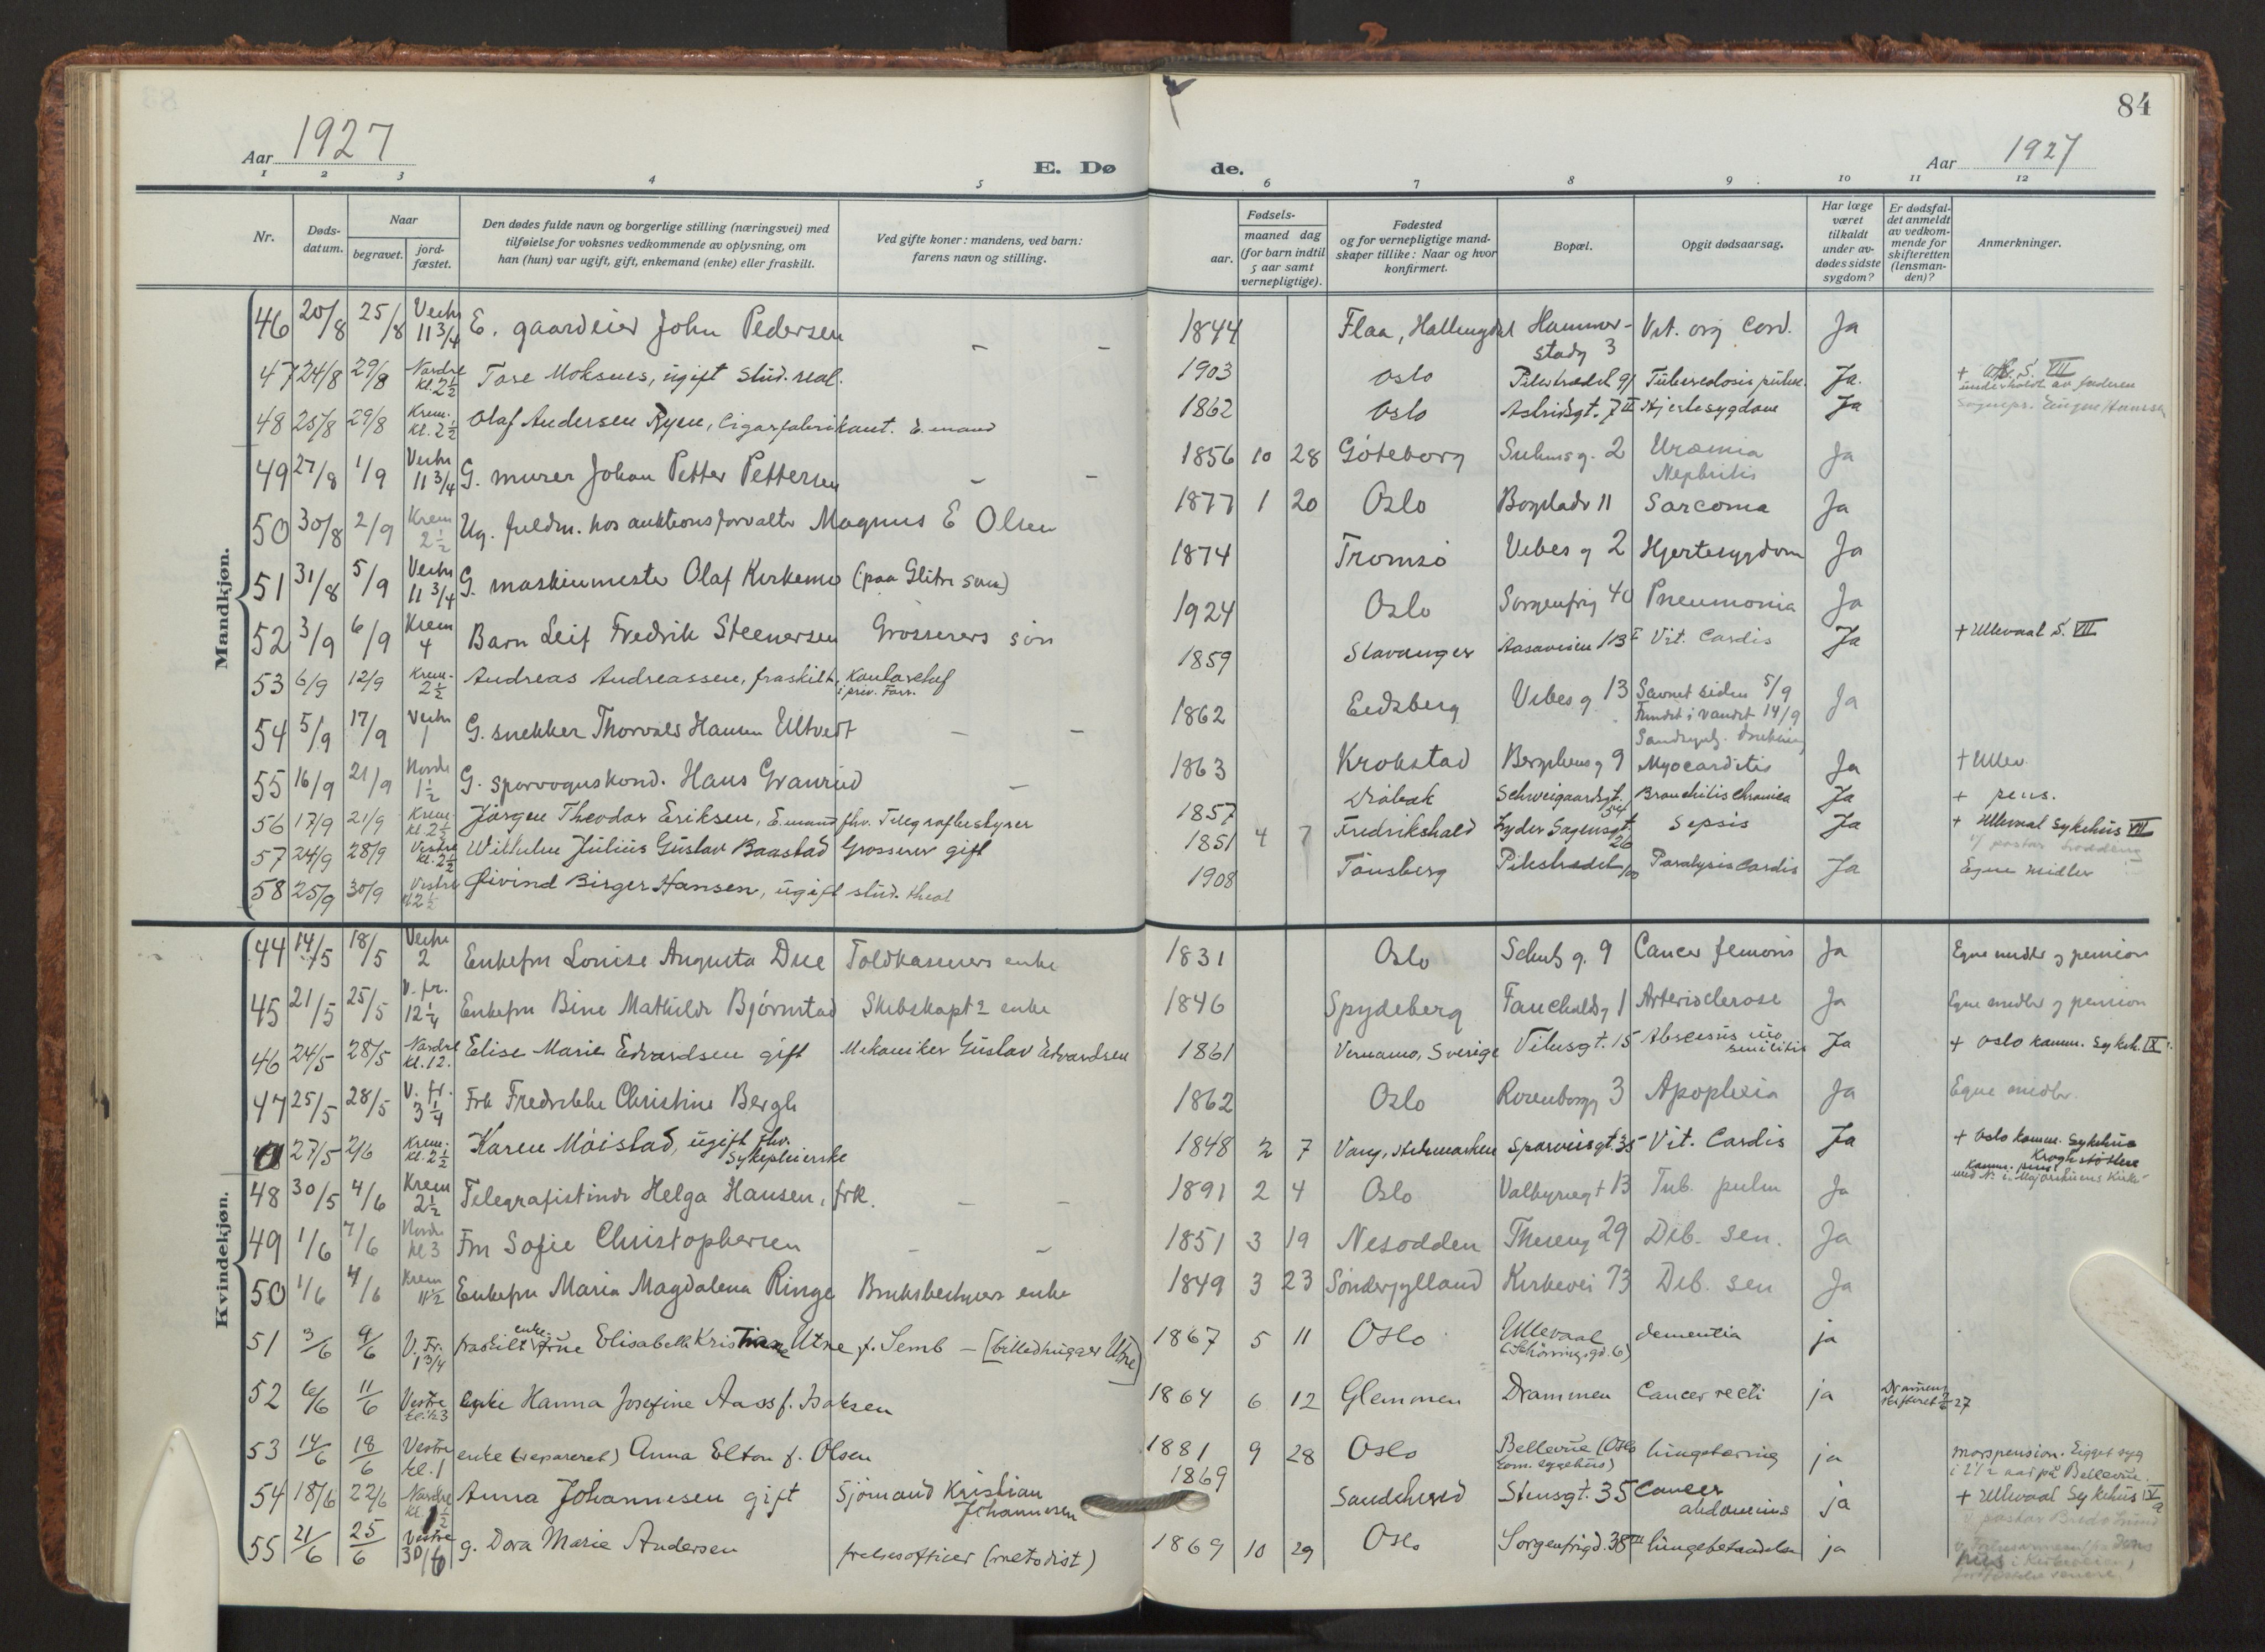 84
Aar 1927
E. Dø de.
Aar 1927
1 2 3 4 5 6 7 8 9 10 11 12
Nr.
Døds-datum.
Naar
begravet.
jord-fæstet.
Den dødes fulde navn og borgerlige stilling (næringsvei) med
tilføielse for voksnes vedkommende av oplysning, om
han (hun) var ugift, gift, enkemand (enke) eller fraskilt.
Ved gifte koner: mandens, ved barn:
farens navn og stilling.
Fødsels-
aar.
maaned dag
(for barn indtil
5 aar samt
vernepligtige).
Fødested
og for vernepligtige mand-
skaper tillike: Naar og hvor
konfirmert.
Bopæl.
Opgit dødsaarsag.
Har læge
været
tilkaldt
under av-
dødes sidste
sygdom?
Er dødsfal-
det anmeldt
av vedkom-
mende for
skifteretten
(lensman-
den)?
Anmerkninger.
Mandkjøn.
46 20/8 25/8 Vestre 11 3/4 E. gaardeier John Pedersen - - 1844 Flaa, Hallingdal Hammerstadg 3 Vit. org Cord. Ja
47 24/8 29/8 Nordre kl. 2 1/2 Tore Moksnes, ugift stud. real. 1903 Oslo Pilestrædet 91 Tuberculosis pulm. Ja. + S. VII
48 25/8 29/8 Krem. kl. 2 1/2 Olaf Andersen Ryen, Cigarfabrikant. E. mand 1862 Oslo Astridsgt. 7 II Hjertesygdom Ja
49 27/8 1/9 Vestre 11 3/4 G. murer Johan Petter Pettersen - - 1856 10 28 Göteborg Suhmsg. 2 Uræmia Nephritis Ja
50 30/8 2/9 Krem 2 1/2 Ug. fuldm. hos auktionsforvalter Magnus E Olsen 1877 1 20 Oslo Bogstadv 11 Sarcoma Ja
51 31/8 5/9 Vestre 11 3/4 G. maskinmester Olaf Kirkemo (paa Glitre san) 1874 Tromsø Vibes g 2 Hjertesygdom Ja
52 3/9 6/9 Krem 4 Barn Leif Fredrik Steenersen Grosserers søn 1924 Oslo Sorgenfrig 40 Pneumonia Ja
53 6/9 12/9 Krem. 2 1/2 Andreas Andreassen, fraskilt, Kontorchef i priv. Forr. 1859 Stavanger Aasaveien 13 I Vit. Cardis Ja + Ullevaal S. VII
54 5/9 17/9 Vestre 1 G. snekker Thorvald Hansen Ultvedt - - 1862 Eidsberg Vibes g. 13 Savnet siden 5/9 Fundet i vandet 14/9 Sandsynl. drukning Ja
55 16/9 21/9 Nordre 1 1/2 G. sporvognskond. Hans Granrud - 1863 Krokstad Bergsliens g 9 Myocarditis Ja + Ullev.
56 17/9 21/9 Krem. kl. 2 1/2 Jørgen Theodor Eriksen, E.mand fhv. Telegrafbestyrer 1857 Drøbak Schweigaardsgt. 54 Bronchitis chronica Ja + pens.
57 24/9 28/9 Vestre kl. 2 1/2 Wilhelm Julius Gustav Baastad Grosserer gift 1851 4 7 Fredrikshald Lyder Sagensgt. 26 Sepsis Ja + Ullevaal sykehus VII
58 25/9 30/9 Vestre kl 2 1/2 Øivind Birger Hansen, ugift stud. theol 1908 Tønsberg Pilestrædet 100 Paralysis cardis Ja Egne midler
Kvindekjøn.
44 14/5 18/5 Vestre 2 Enkefru Louise Augusta Due Toldkasserers enke 1831 Oslo Schultz g. 9 Cancer femoris Ja Egne midler og pension
45 21/5 25/5 V. fr. 12 1/4 Enkefru Bine Mathilde Bjørnstad Skibskapt's enke 1846 Spydeberg Fauchaldsg 1 Arterisclerose Ja Egne midler og pension
46 24/5 28/5 Nordre kl. 12. Elise Marie Edvardsen gift Mekaniker Gustav Edvardsen 1861 Vernamo, Sverige Vibesgt. 15 Abscesus Ja + Oslo komm. Sykeh. IX
47 25/5 28/5 V. fr. 3 1/4 Frk Fredrikke Christine Bergh 1862 Oslo Rosenborgg 3 Apoplexia Ja Egne midler.
27/5 2/6 Krem. kl. 2 1/2 Karen Moistad, ugift fhv. Sykepleierske 1848 2 7 Vang, Hedemarken Sporveisgt. 35 Vit. Cardis Ja + Oslo komm. Sykehus
48 30/5 4/6 Krem 2 1/2 Telegrafistinde Helga Hansen, frk. - - 1891 2 4 Oslo Valkyriegt 13 Tub. pulm Ja
49 1/6 7/6 Nordre kl 3 Fru Sofie Christophersen - - 1851 3 19 Nesodden Thereseg 29 Deb. sen. Ja
50 1/6 4/6 Krem 11 1/2 Enkefru Maria Magdalena Ringe Bruksbestyrers enke 1849 3 23 Sønderjylland Kirkevei 73 Deb. sen Ja
51 3/6 9/6 V. Fr. 1 3/4 fraskilt enke Frue Elisabeth Kristiane Utne f. Semb - [billedhugger Utne] 1867 5 11 Oslo Ullevaal (Schønningsgd. 6) dementia ja
52 6/6 11/6 Vestre kl. 1/2 3 enke Hanna Josefine Aass f. Isaksen 1864 6 12 Glemmen Drammen Cancer recti ja Drammens skifteret
53 14/6 18/6 Vestre kl. 1 enke (separeret) Anna Elton f. Olsen 1881 9 28 Oslo Bellevue (Oslo kom. sygehus) lungetæring ja morspension. Ligget syg i 2 1/2 aar på Bellevue.
54 18/6 22/6 Nordre kl. 1 1/2 Anna Johannesen gift Sjømand Kristian Johannesen 1869 Sandeherred Stensgt. 35 Cancer abdominis ja + Ullevaal Sykehus IX a
55 21/6 25/6 Vestre 30/6 g. Dora Marie Andersen frelsesofficer (metodist) 1869 10 29 Oslo Sorgenfrigd. 38 III lungebetændelse ja